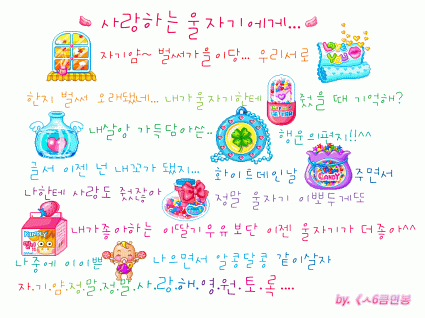 사랑하는 울 자기에게...
자기얌~ 벌써가을이당... 우리서로
한지 벌써 오래됐네... 내가울자기한테 줬을 때 기억해?
내살앙 가득담아쏜.. 행운의편지!!^^
글서 이젠 넌 내꼬가 됐지... 화이트데인날 주면서
나한테 사랑도 줬잖아 정말 울자기 이뽀두게또
내가좋아하는 이딸기우유보단 이젠 울자기가 더좋아^^
나중에 이이쁜 나으면서 알콩달콩 같이살자
자.기.얌.정.말.정.말.사.랑.해.영.원.토.록....
by.